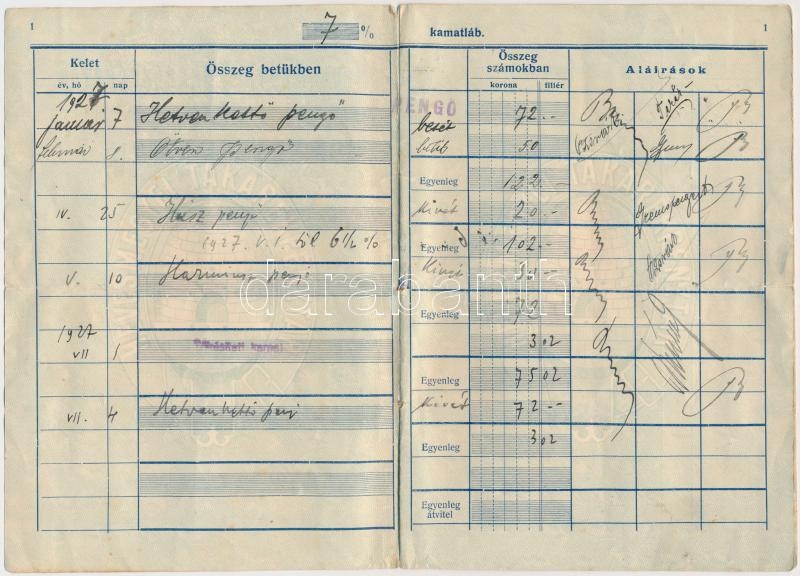 1 7 % kamatláb. 1
Kelet Összeg betükben Összeg számokban Aláirások
év, hó nap korona fillér
1927 PENGŐ
január 7 Hetvenkettő pengő betét 72 --
február 8. Ötven pengő betét 50
Egyenleg 122 --
IV. 25 Húsz pengő kivét 20 --
1927. V. 1. től 6 1/2 %
Egyenleg 102 --
V. 10 Harmincz pengő 30 --
Egyenleg 72 --
1927
VII 1 Tőkésített kamat 3 02
Egyenleg 75 02
VII. 4 Hetvenkettő pengő Kivét 72 --
Egyenleg 3 02
Egyenleg átvitel
darabanth